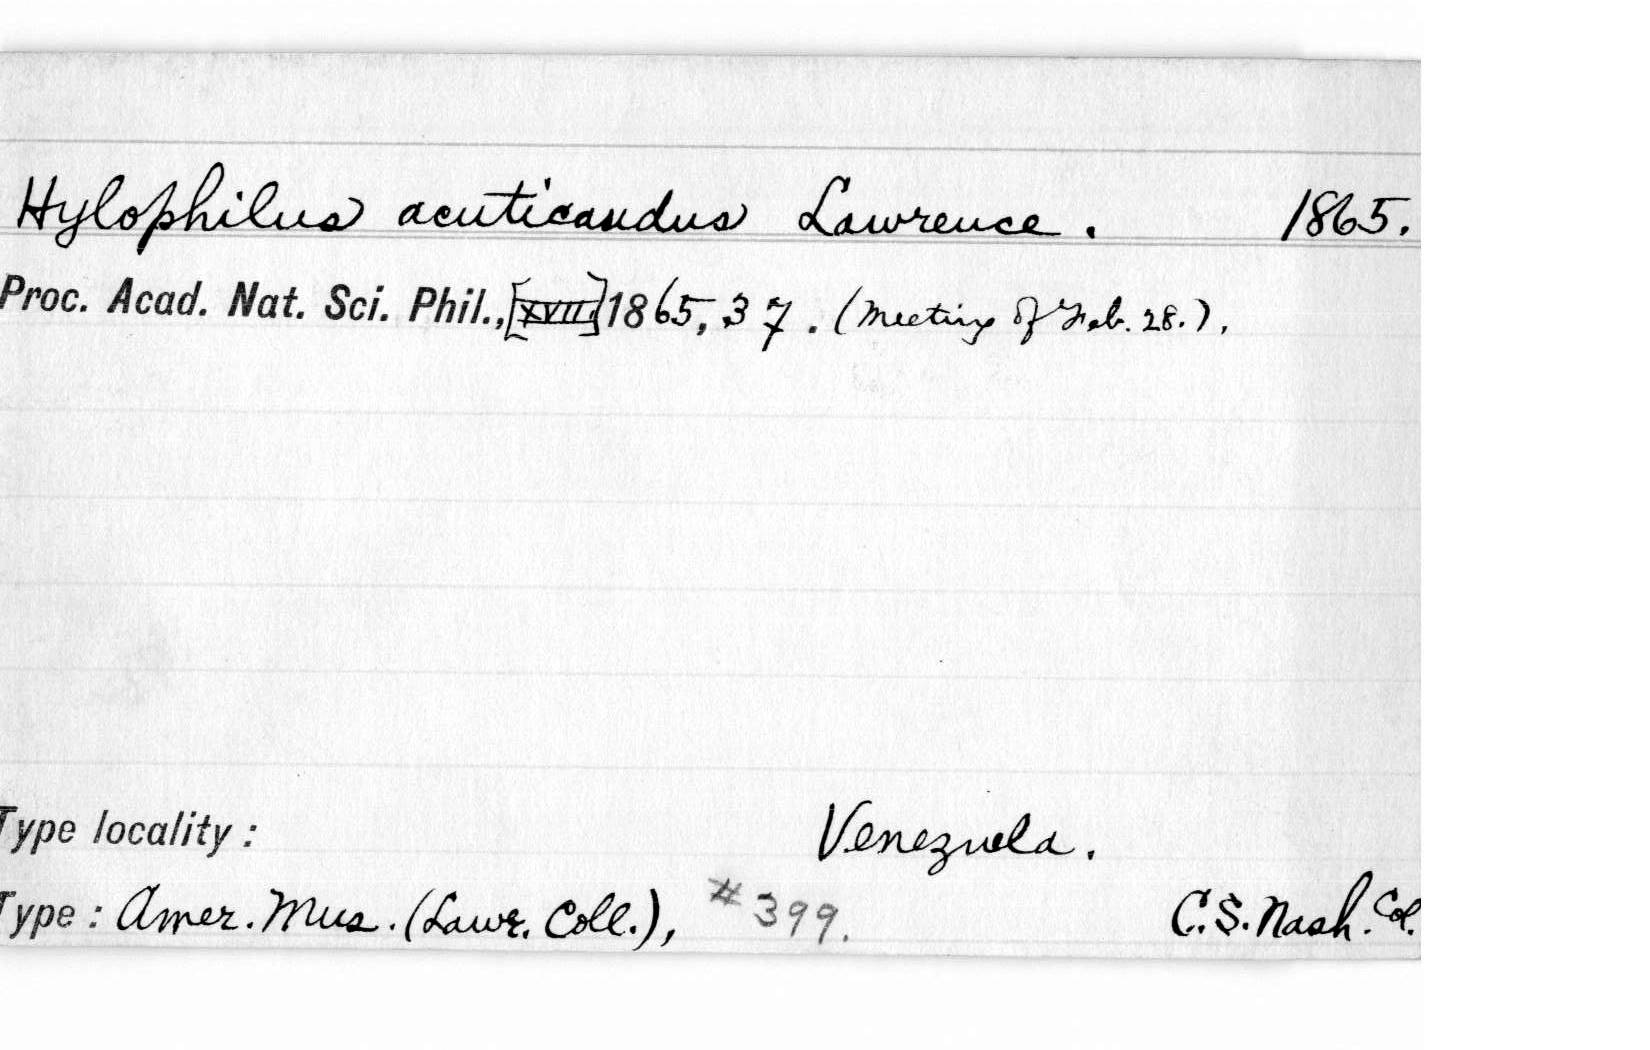 Hylophilus acuticaudus Lawrence. 1865.
Proc. Acad. Nat. Sci. Phil., [XVII.] 1865, 37. (Meeting of Feb. 28.),
Type locality: Venezuela.
Type: Amer. Mus. (Lawr. Coll.), #399. C.S. Nash. Col.